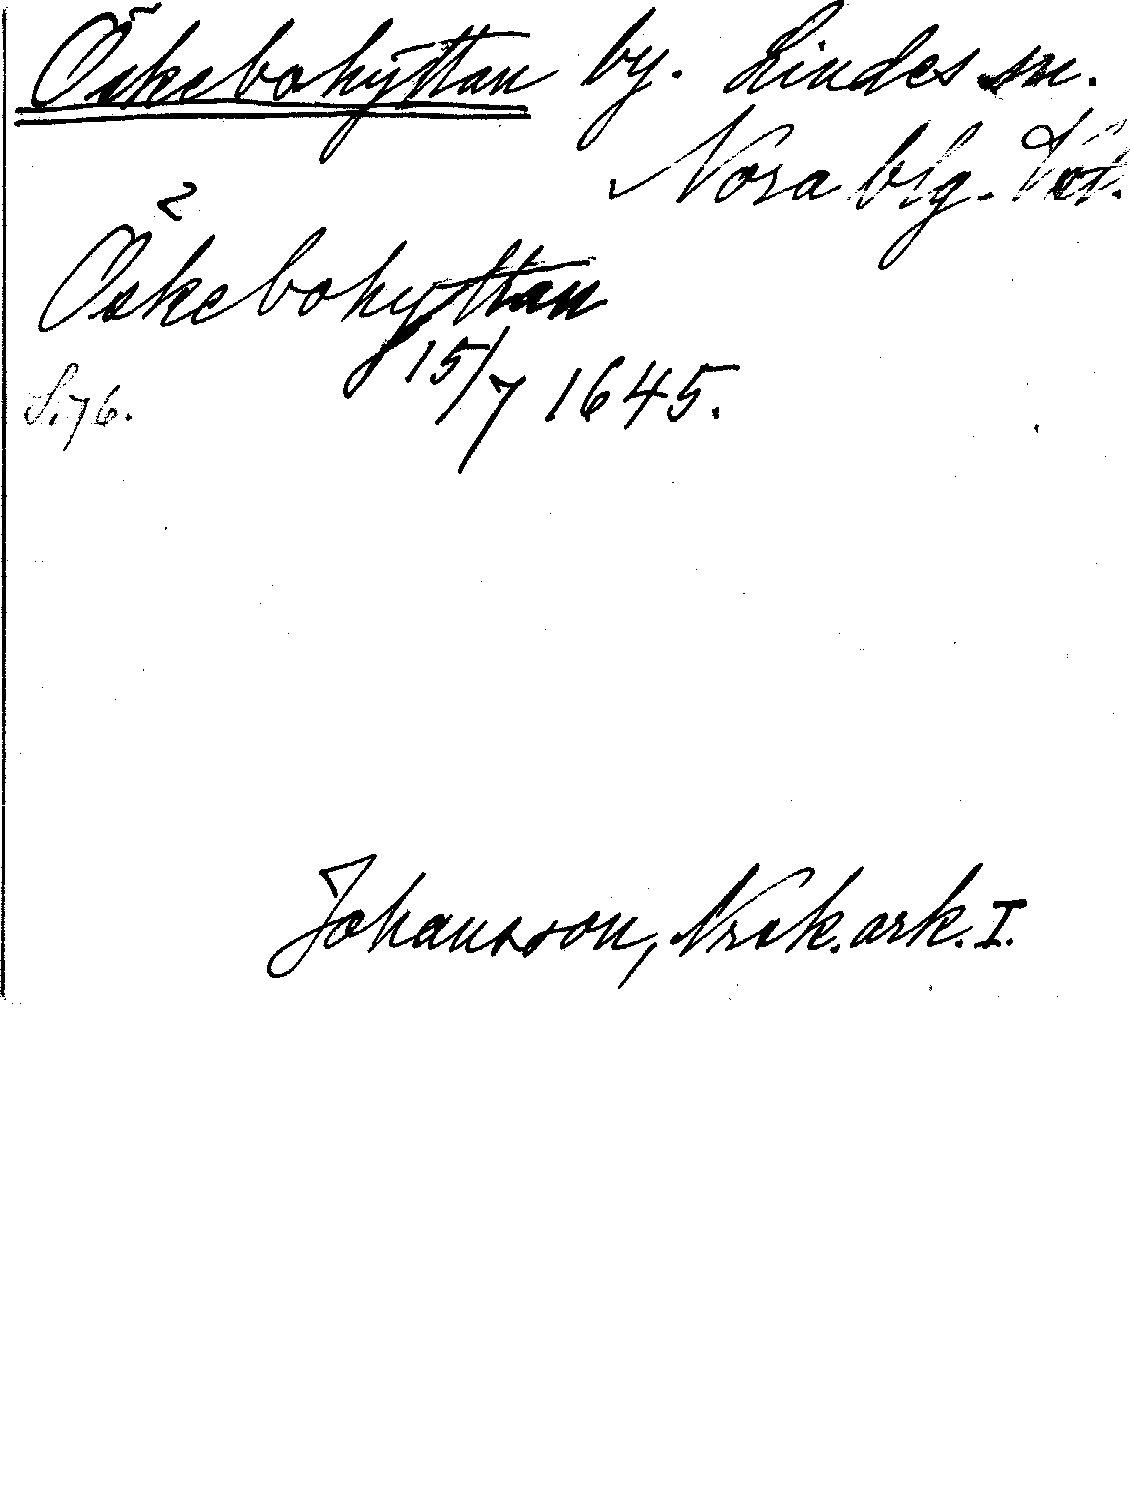 Öskebohyttan by. Lindes sn.
Nora blg. Vstl.
Öskebohyttan
15/7 1645.
S. 76.
Johansson, Norsk. ark. I.